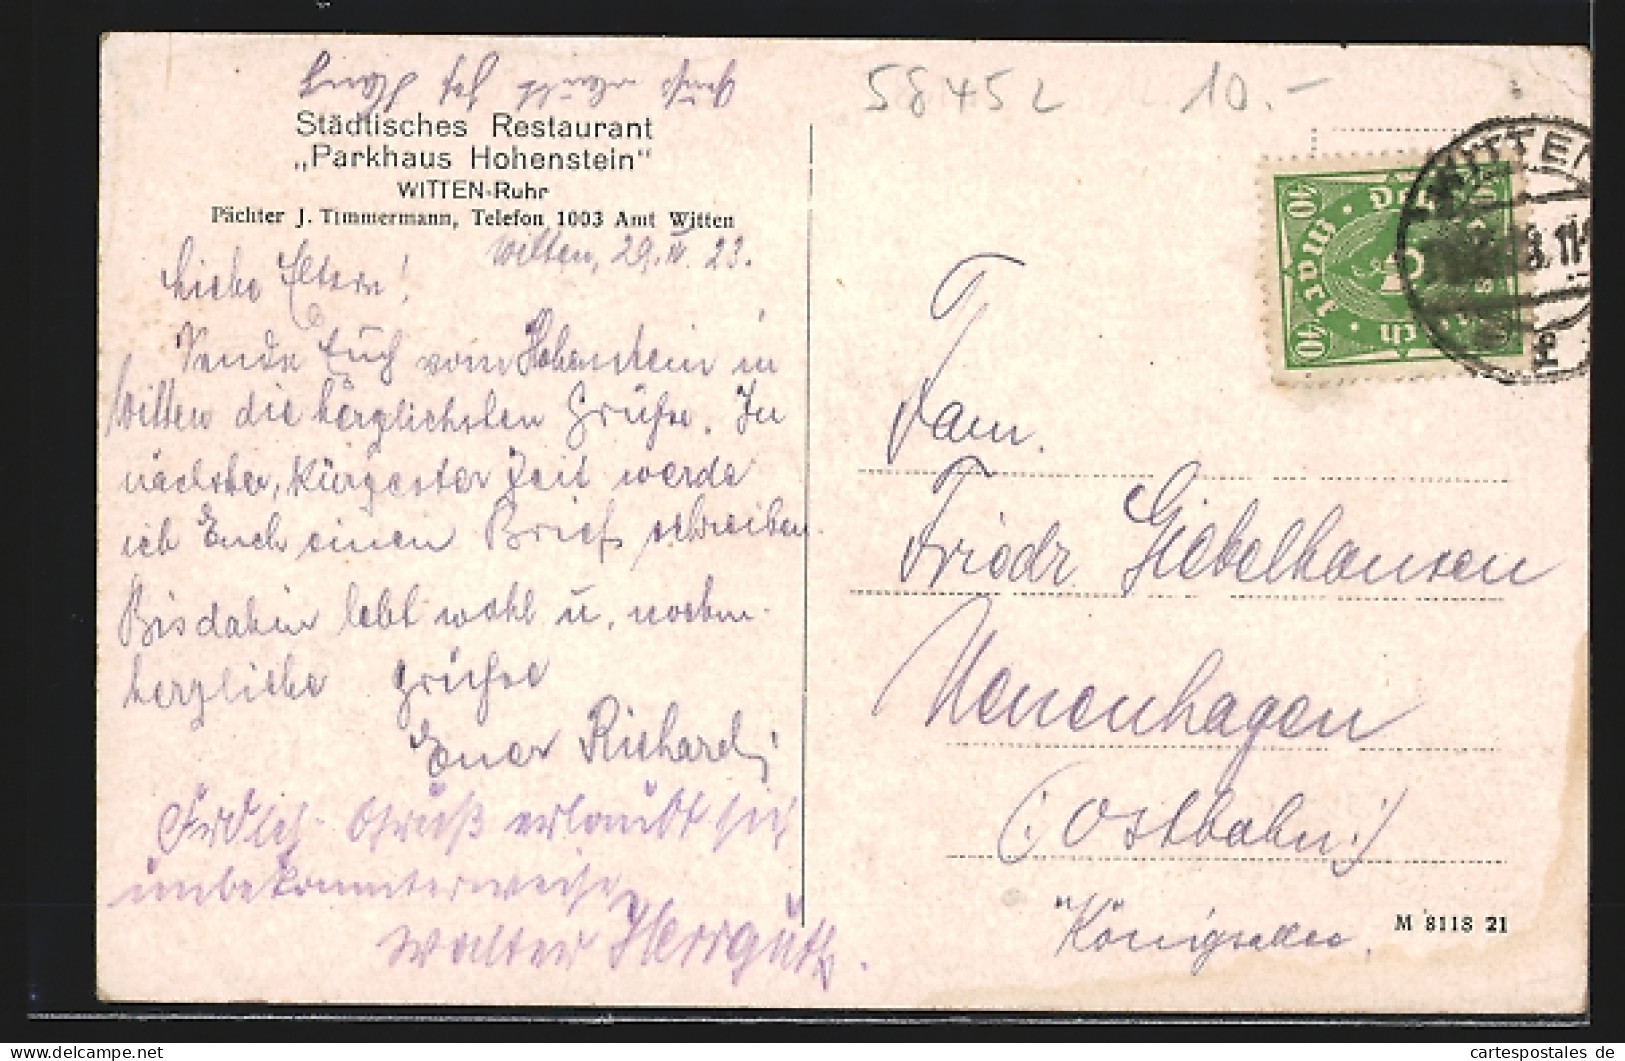 58452 10.-
Städtisches Restaurant
„Parkhaus Hohenstein"
WITTEN-Ruhr
Pächter J. Timmermann, Telefon 1003 Amt Witten
Witten, 29. IV. 23.
Liebe Eltern!
Sende Euch vom Hohenstein in
Witten die herzlichsten Grüße. In
nächster, kürzester Zeit werde
ich Euch einen Brief schreiben.
Bisdahin lebt wohl u. nochm.
herzliche Grüße
Euer Richard
Grüß erlaubt sich
unbekannterweise
Walter Herrgüth.
Fam.
Friedr Giebelhausen
Neuenhagen
(: Ostbahn :)
Königsallee.
M 8118 21
40 Mark
WITTEN
cartespostales de